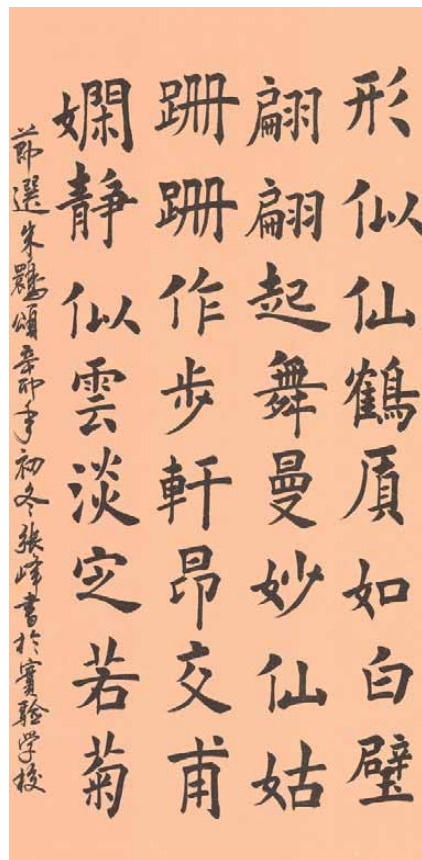 形似仙鶴貭如白璧
翩翩起舞曼妙仙姑
跚跚作步軒昂交甫
嫻静似雲淡㝎若菊
節選朱鹮頌辛卯年初冬張峰書於實驗学校